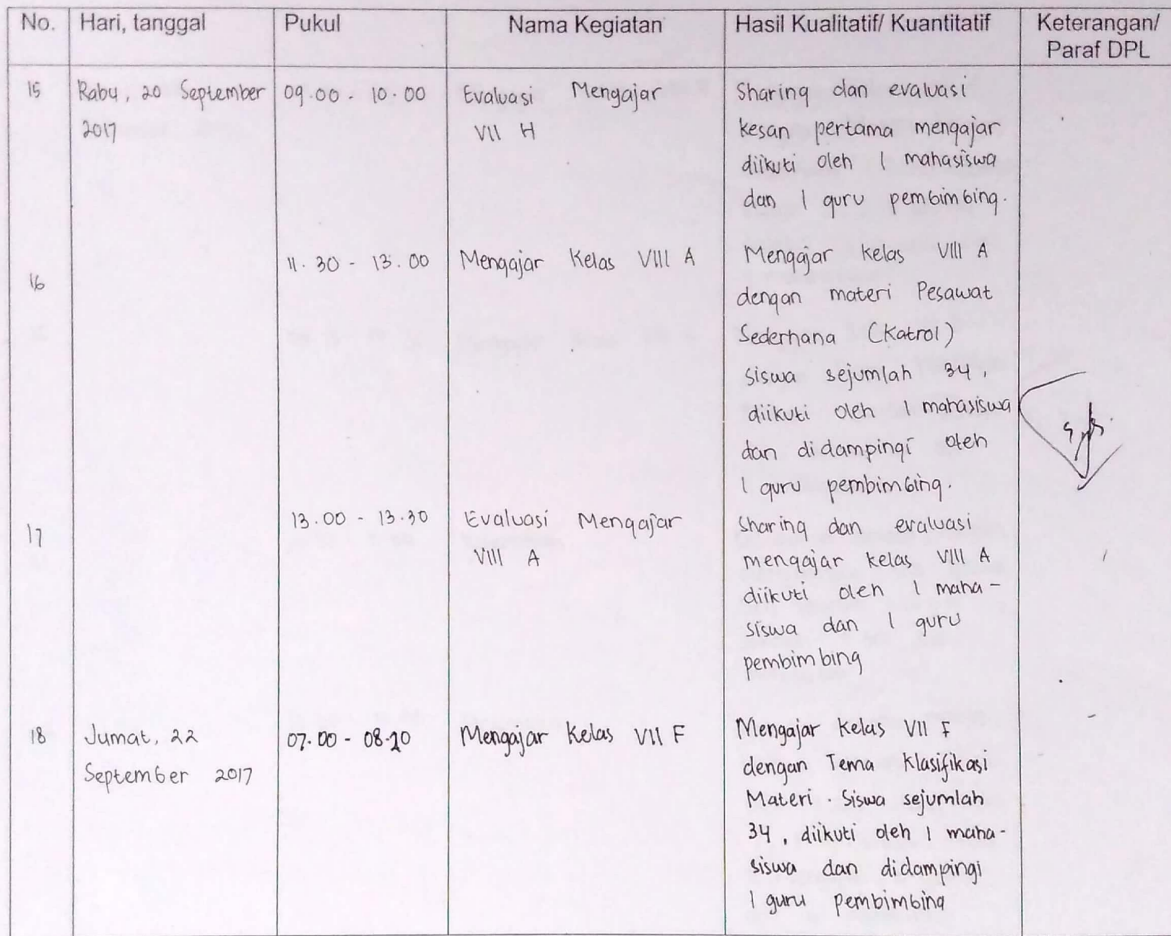 No. Hari, tanggal Pukul Nama Kegiatan Hasil Kualitatif/ Kuantitatif Keterangan/
Paraf DPL
15 Rabu, 20 September 09.00 - 10.00 Evaluasi Mengajar Sharing dan evaluasi
2017 VII H kesan pertama mengajar
diikuti oleh 1 mahasiswa
dan 1 guru pembimbing.
16 11.30 - 13.00 Mengajar Kelas VIII A Mengajar kelas VIII A
dengan materi Pesawat
Sederhana (Katrol)
siswa sejumlah 34,
diikuti oleh 1 mahasiswa
dan didampingi oleh
1 guru pembimbing.
17 13.00 - 13.30 Evaluasi Mengajar Sharing dan evaluasi
VIII A mengajar kelas VIII A
diikuti oleh 1 maha-
siswa dan 1 guru
pembimbing
18 Jumat, 22 07.00 - 08.20 Mengajar Kelas VII F Mengajar Kelas VII F
September 2017 dengan Tema Klasifikasi
Materi. Siswa sejumlah
34, diikuti oleh 1 maha-
siswa dan didampingi
1 guru pembimbing